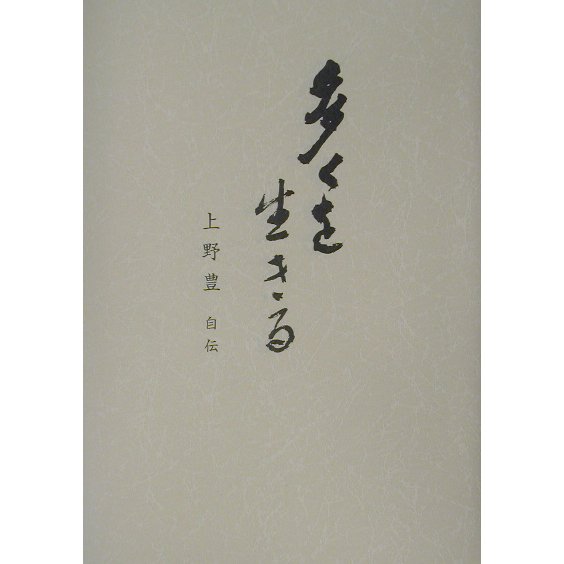 多くを
生きる
上野豊 自伝